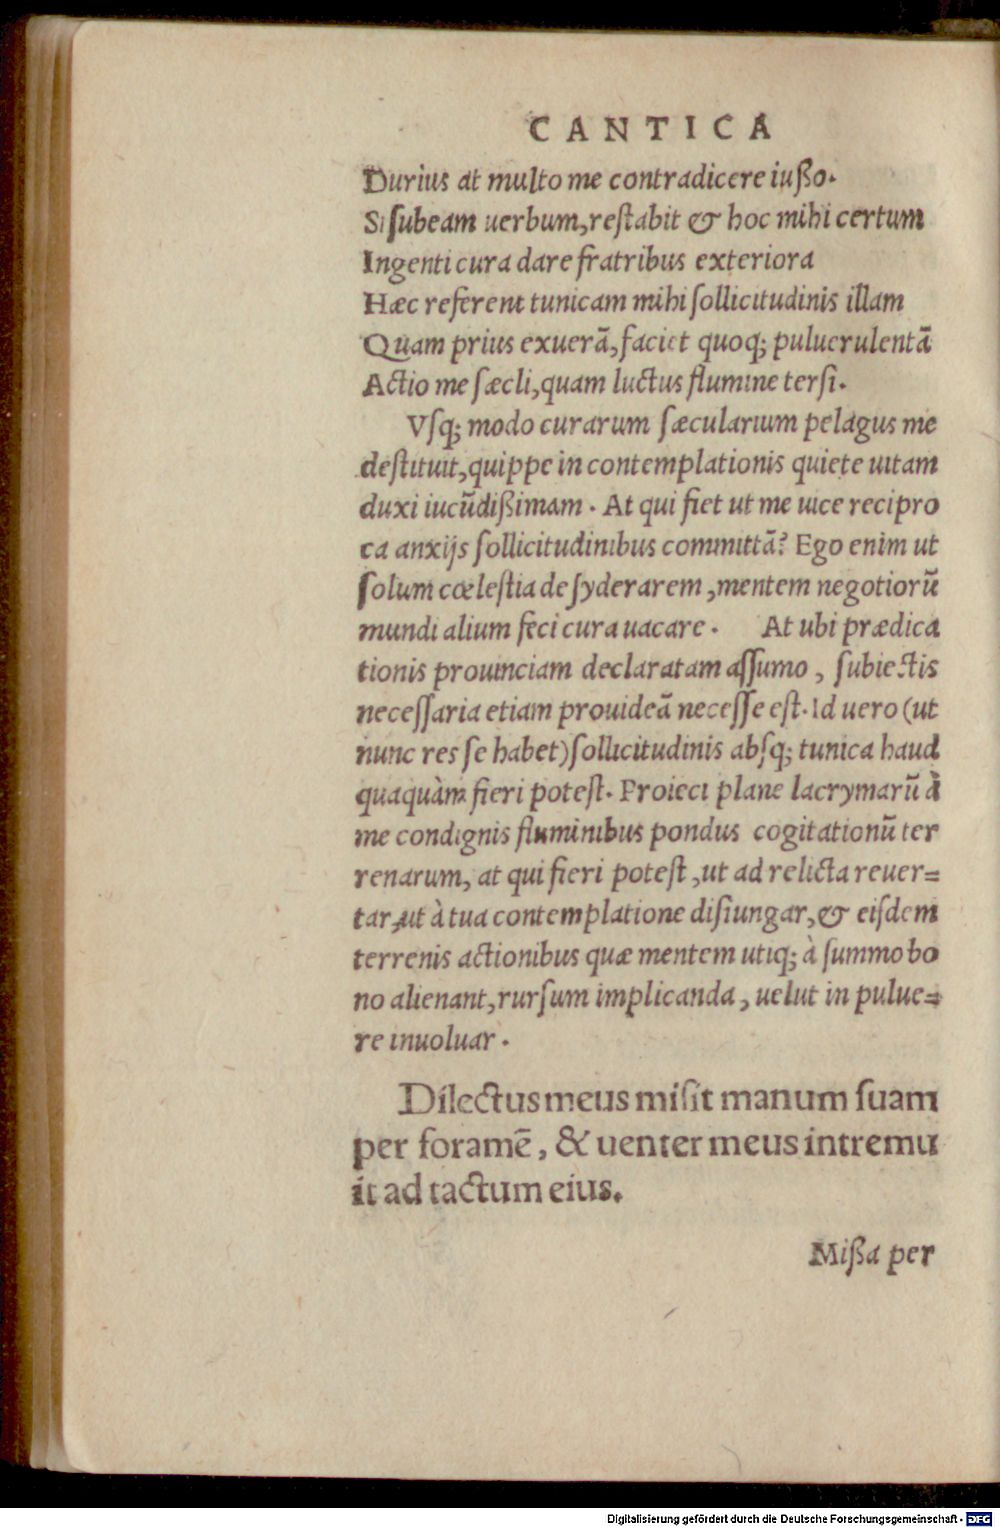 CANTICA
Durius at multo me contradicere iußo.
Si subeam uerbum, restabit & hoc mihi certum
Ingenti cura dare fratribus exteriora
Hæc referent tunicam mihi sollicitudinis illam
Quam prius exuerã, faciet quoq; puluerulentã
Actio me sæcli, quam luctus flumine tersi.
Vsq; modo curarum sæcularium pelagus me
destituit, quippe in contemplationis quiete uitam
duxi iucũdißimam. At qui fiet ut me uice recipro
ca anxijs sollicitudinibus committã? Ego enim ut
solum cœlestia desyderarem, mentem negotiorũ
mundi alium feci cura uacare. At ubi prædica
tionis prouinciam declaratam assumo, subiectis
necessaria etiam prouideã necesse est. Id uero (ut
nunc res se habet) sollicitudinis absq; tunica haud
quaquàm fieri potest. Proieci plane lacrymarũ à
me condignis fluminibus pondus cogitationũ ter
renarum, at qui fieri potest, ut ad relicta reuer=
tar, ut à tua contemplatione disiungar, & eisdem
terrenis actionibus quæ mentem utiq; à summo bo
no alienant, rursum implicanda, uelut in pulue=
re inuoluar.
Dilectus meus misit manum suam
per foramẽ, & uenter meus intremu
it ad tactum eius.
Mißa per
Digitalisierung gefördert durch die Deutsche Forschungsgemeinschaft - DFG